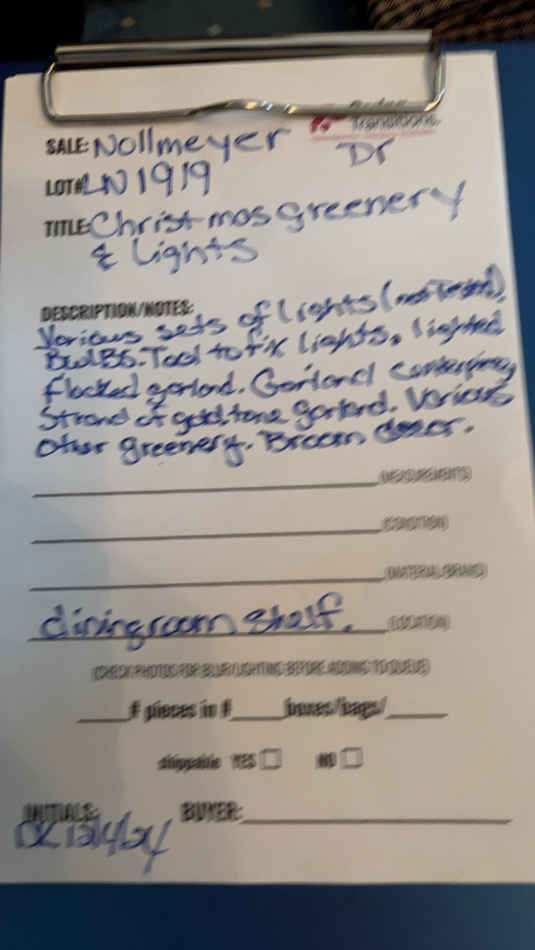 Transitions
SALE: Nollmeyer Dr
LOT# LN1919
TITLE: Christmas greenery
& Lights
DESCRIPTION/NOTES:
Various sets of lights (not Tested).
BulBs. Tool to fix lights. lighted
flocked garland. Garland centerpiece
Strand of gold tone garland. Various
other greenery. Broom decor.
(MEASUREMENTS)
(CONDITION)
(MATERIAL/BRAND)
diningroom shelf. (LOCATION)
(CHECK PHOTOS FOR BLUR/LIGHTING BEFORE ADDING TO QUEUE)
# pieces in # boxes/bags/
shippable YES NO
INITIALS: BUYER:
12/4/24